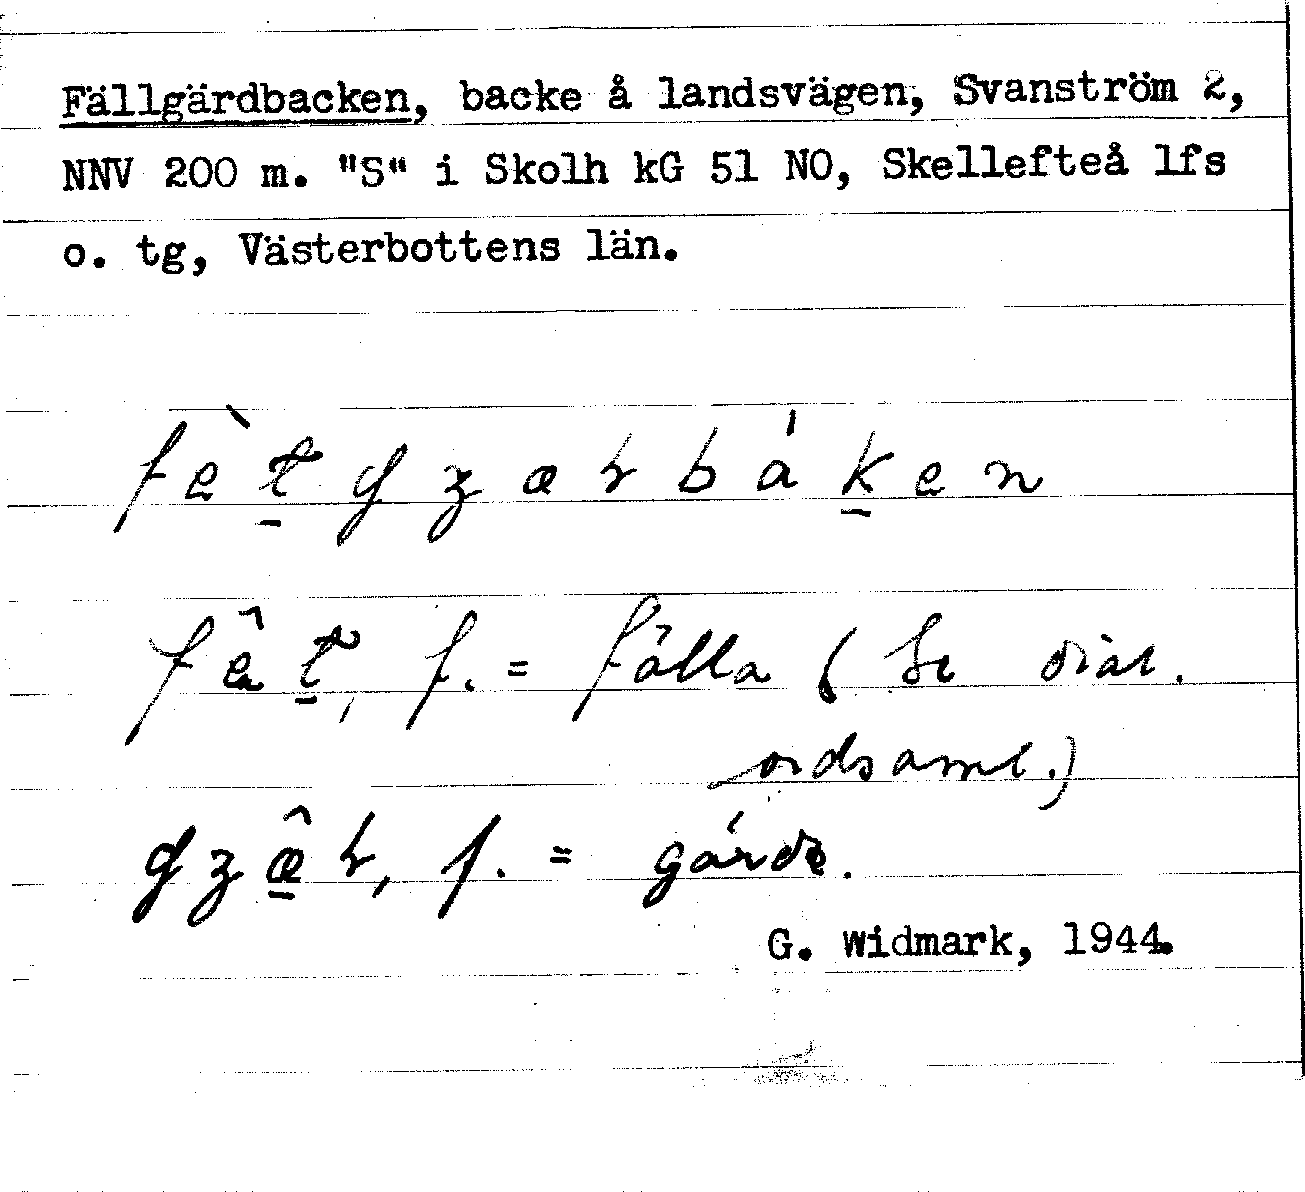 Fällgärdbacken, backe å landsvägen, Svanström 2,
NNV 200 m. "S" i Skolh kG 51 NO, Skellefteå lfs
o. tg, Västerbottens län.
f. = fälla (Se dial.
ordsaml.)
f. = gärde.
G. Widmark, 1944.